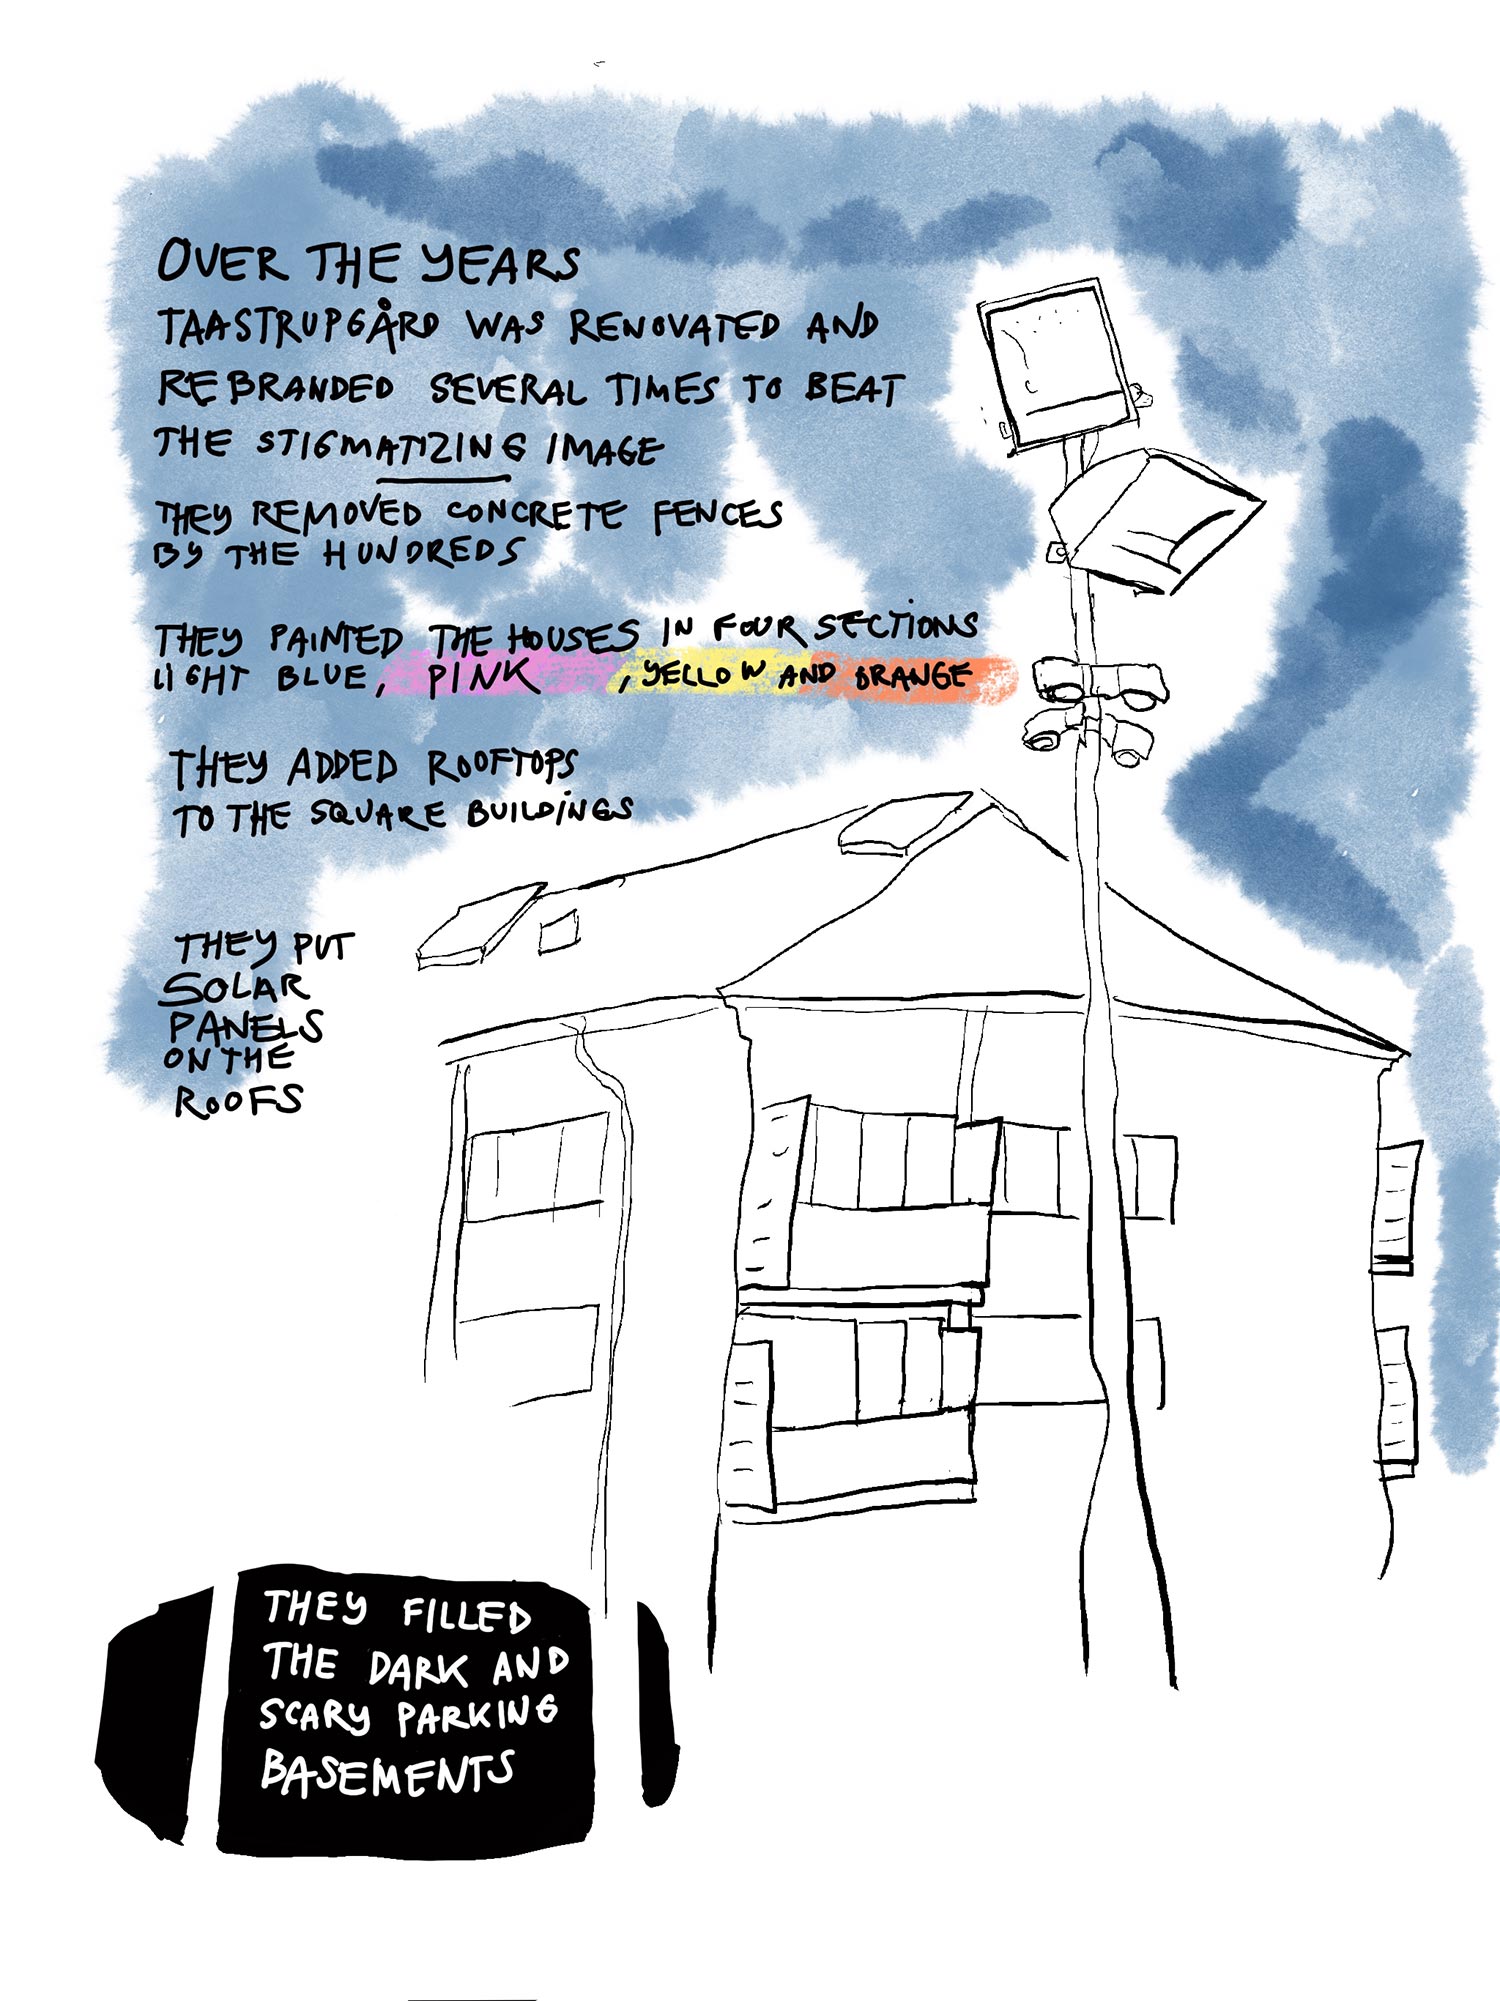 OVER THE YEARS
TAASTRUPGÅRD WAS RENOVATED AND
REBRANDED SEVERAL TIMES TO BEAT
THE STIGMATIZING IMAGE
THEY REMOVED CONCRETE FENCES
BY THE HUNDREDS
THEY PAINTED THE HOUSES IN FOUR SECTIONS
LIGHT BLUE, PINK , YELLOW AND ORANGE
THEY ADDED ROOFTOPS
TO THE SQUARE BUILDINGS
THEY PUT
SOLAR
PANELS
ON THE
ROOFS
THEY FILLED
THE DARK AND
SCARY PARKING
BASEMENTS